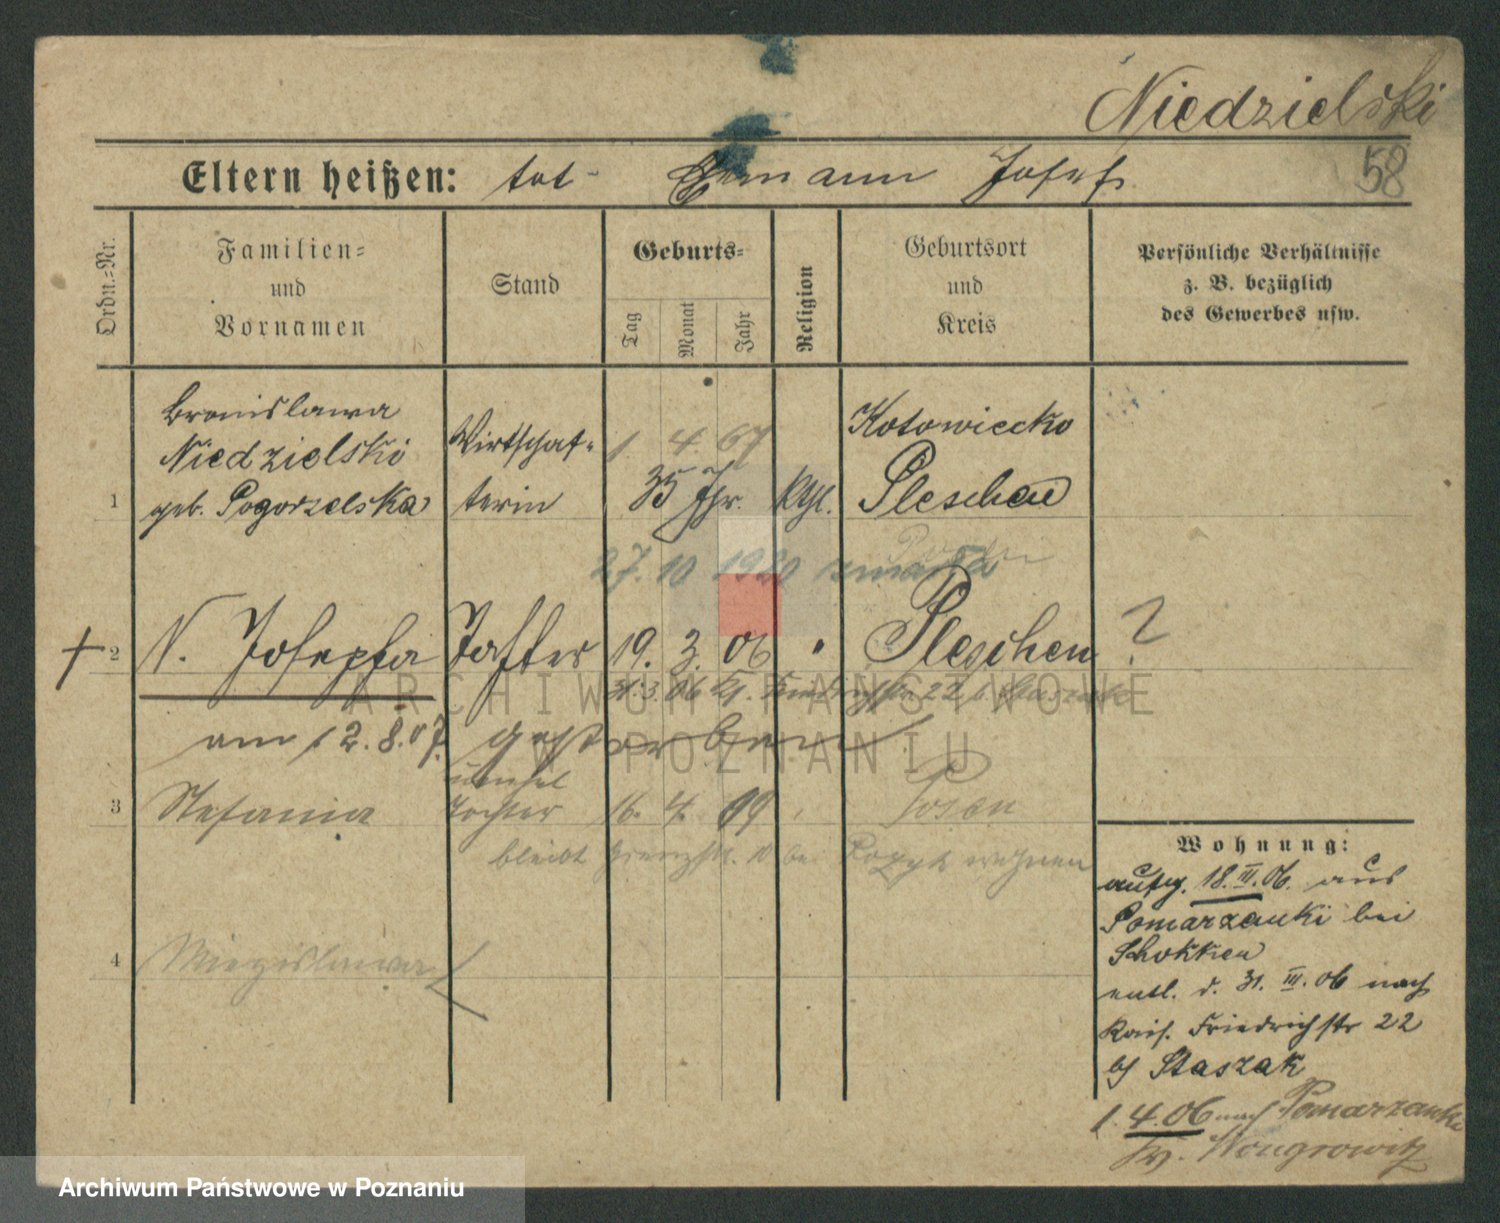 Niedzielski
58
Eltern heißen: tot - Ehemann Josef
Ordn.-Nr.
Familien-
und
Vornamen
Stand
Geburts-
Tag
Monat
Jahr
Religion
Geburtsort
und
Kreis
Persönliche Verhältnisse
z. B. bezüglich
des Gewerbes usw.
1
Bronislawa
Niedzielski
geb. Pogorzelska
Wirtschaf-
terin
1. 4. 67
35 Jhr.
kthl.
Kotowiecko
Pleschen
27. 10 1920 zmarła
2
N. Josepha
Tochter
19. 3. 06
"
Pleschen
?
31. 3. 06 Friedrichstr. 22 b. Staszak
am 12. 8. 07. gestorben
3
Stefania
unehel
Tochter
16. 4. 09
Posen
bleibt Grenzstr. 10 bei wohnen
4
Wohnung:
aufg. 18. III. 06. aus
Pomarzanki bei
Schokken
entl. d. 31. III. 06 nach
Kais. Friedrichstr 22
b/ Staszak
1. 4. 06 nach Pomarzanki
Kr. Wongrowitz
ARCHIWUM PAŃSTWOWE
W POZNANIU
Archiwum Państwowe w Poznaniu